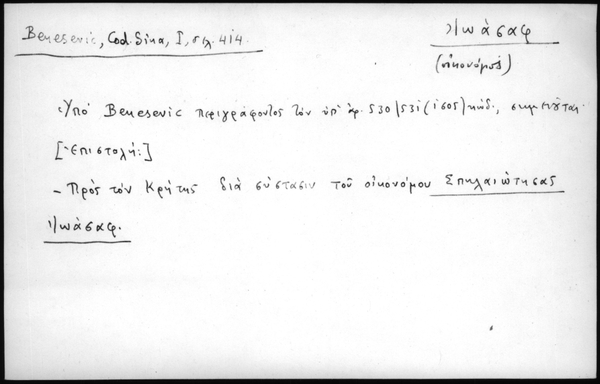 Benesevic, Cod. Sina, I, σελ. 414.
Ἰωάσαφ
(οἰκονόμος)
Ὑπὸ Benesevic περιγράφοντος τὸν ὑπ' ἀρ. 530/531 (ἰσος) κώδ., σημειοῦται
[Ἐπιστολή:]
- Πρὸς τὸν Κρήτης διὰ σύστασιν τοῦ οἰκονόμου Σπηλαιωτήσας
Ἰωάσαφ.